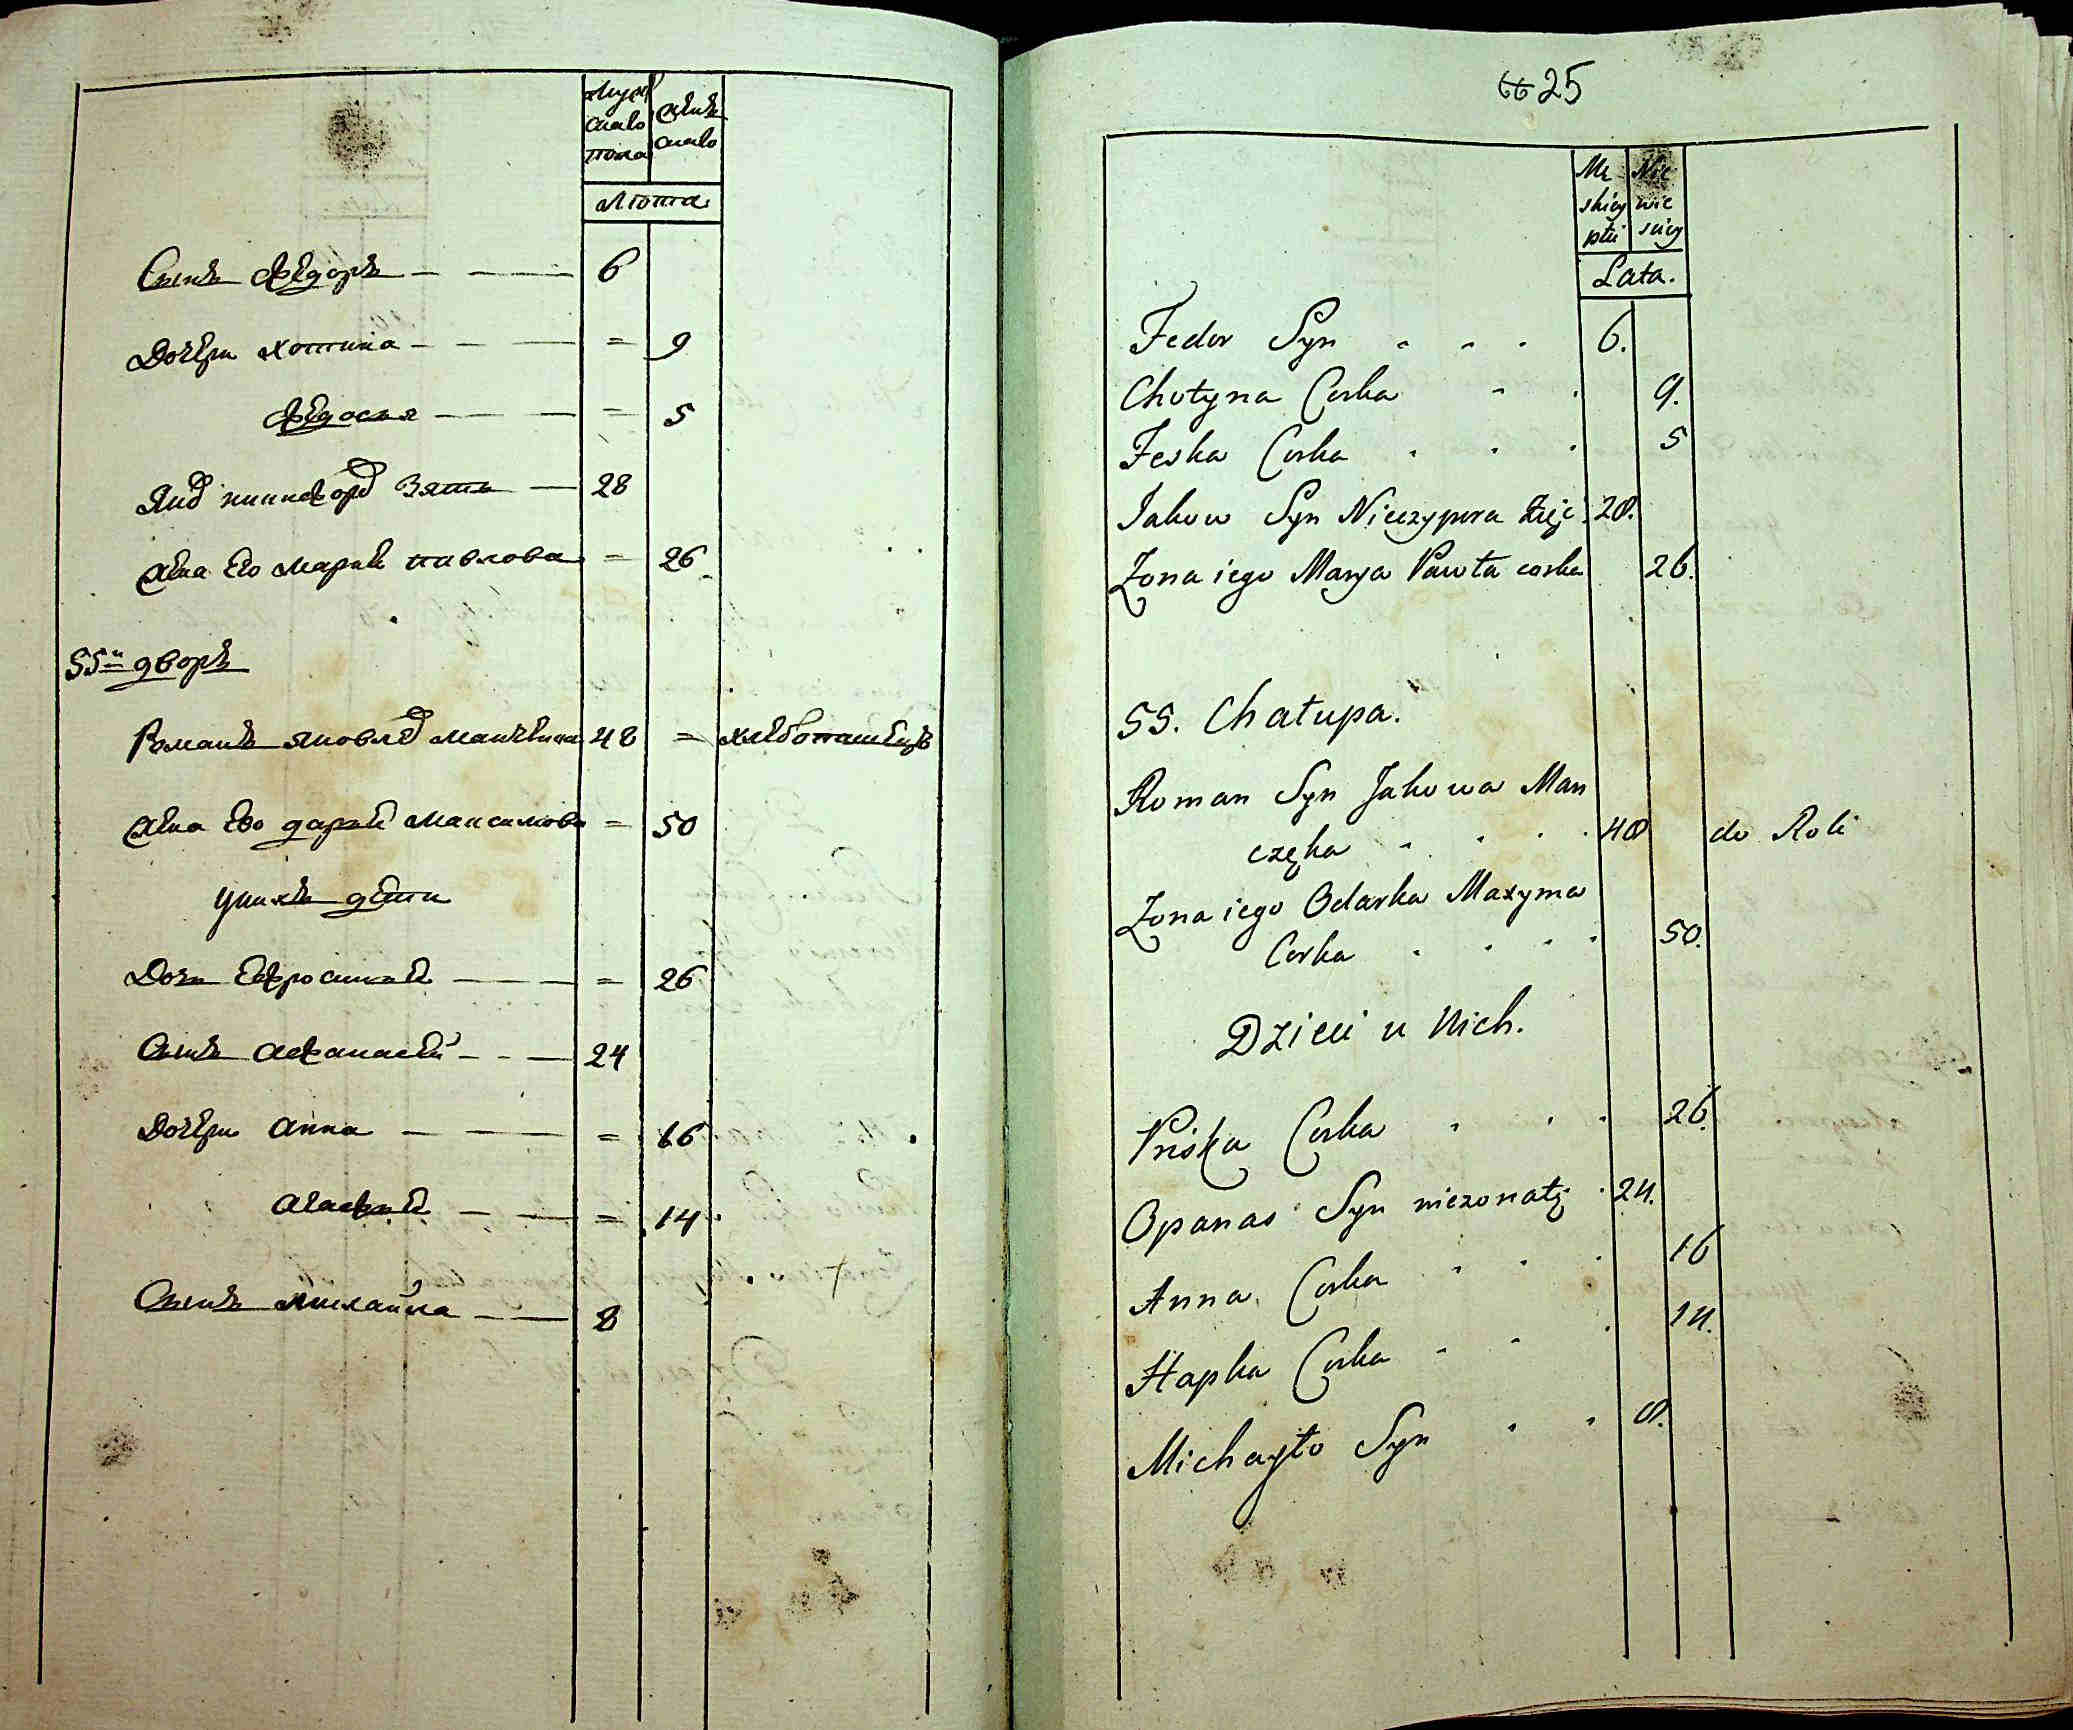 Муж
скаго
пола
Жен
скаго
Лѣта
Сынъ Ѳедоръ 6
Дочери Хотина = 9
Ѳедосья = 5
Зять 28
Жена Его Марья Павлова = 26
55й дворъ
Романъ Яковле 48 = хлѣбопашецъ
Жена Ево Дарья Максимова = 50
У нихъ дѣти
Дочь Ефросинья = 26
Сынъ Афанасей 24
Дочери Анна = 16
Агафья = 14
Сынъ Михайла 8
25
Mę
skiey
płci
Nie
wie
sciey
Lata.
Fedor Syn 6.
Chotyna Corka 9.
Feska Corka 5
Jakow Syn Nieczypora Zięć 28.
Zona iego Marya Pawła corka 26.
55. Chałupa.
Roman Syn Jakowa Man
częka 48 do Roli
Zona iego Odarka Maxyma
Corka 50.
Dzieci u Nich.
Priska Corka 26.
Opanas Syn niezonaty 24.
Anna Corka 16
Hapka Corka 14.
Michayło Syn 8.